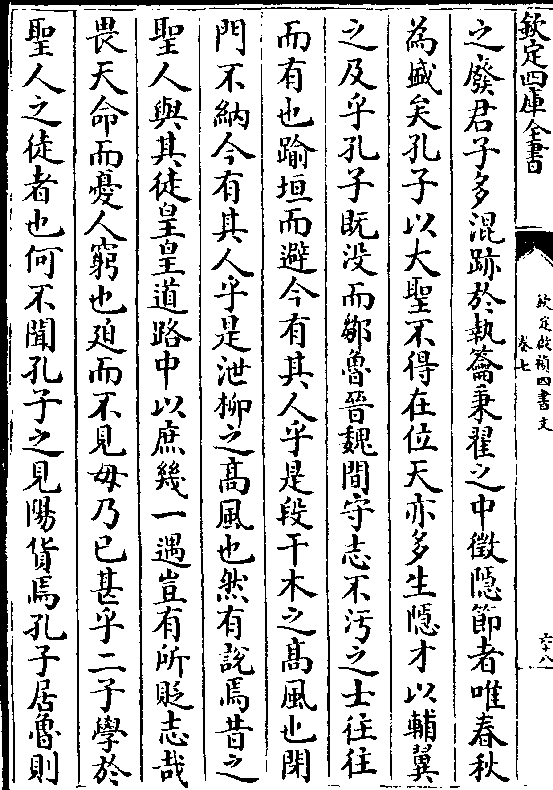 欽定四庫全書
欽定啟禎四書文
卷七
六十八
之廢君子多混跡於執籥秉翟之中徵隠節者唯春秋
為盛矣孔子以大聖不得在位天亦多生隠才以輔翼
之及乎孔子既没而鄒魯晉魏間守志不汚之士往往
而有也踰垣而避今有其人乎是段干木之髙風也閉
門不納今有其人乎是泄柳之髙風也然有説焉昔之
聖人與其徒皇皇道路中以庶幾一遇豈有所貶志哉
畏天命而憂人窮也廹而不見毋乃已甚乎二子學於
聖人之徒者也何不聞孔子之見陽貨焉孔子居魯則